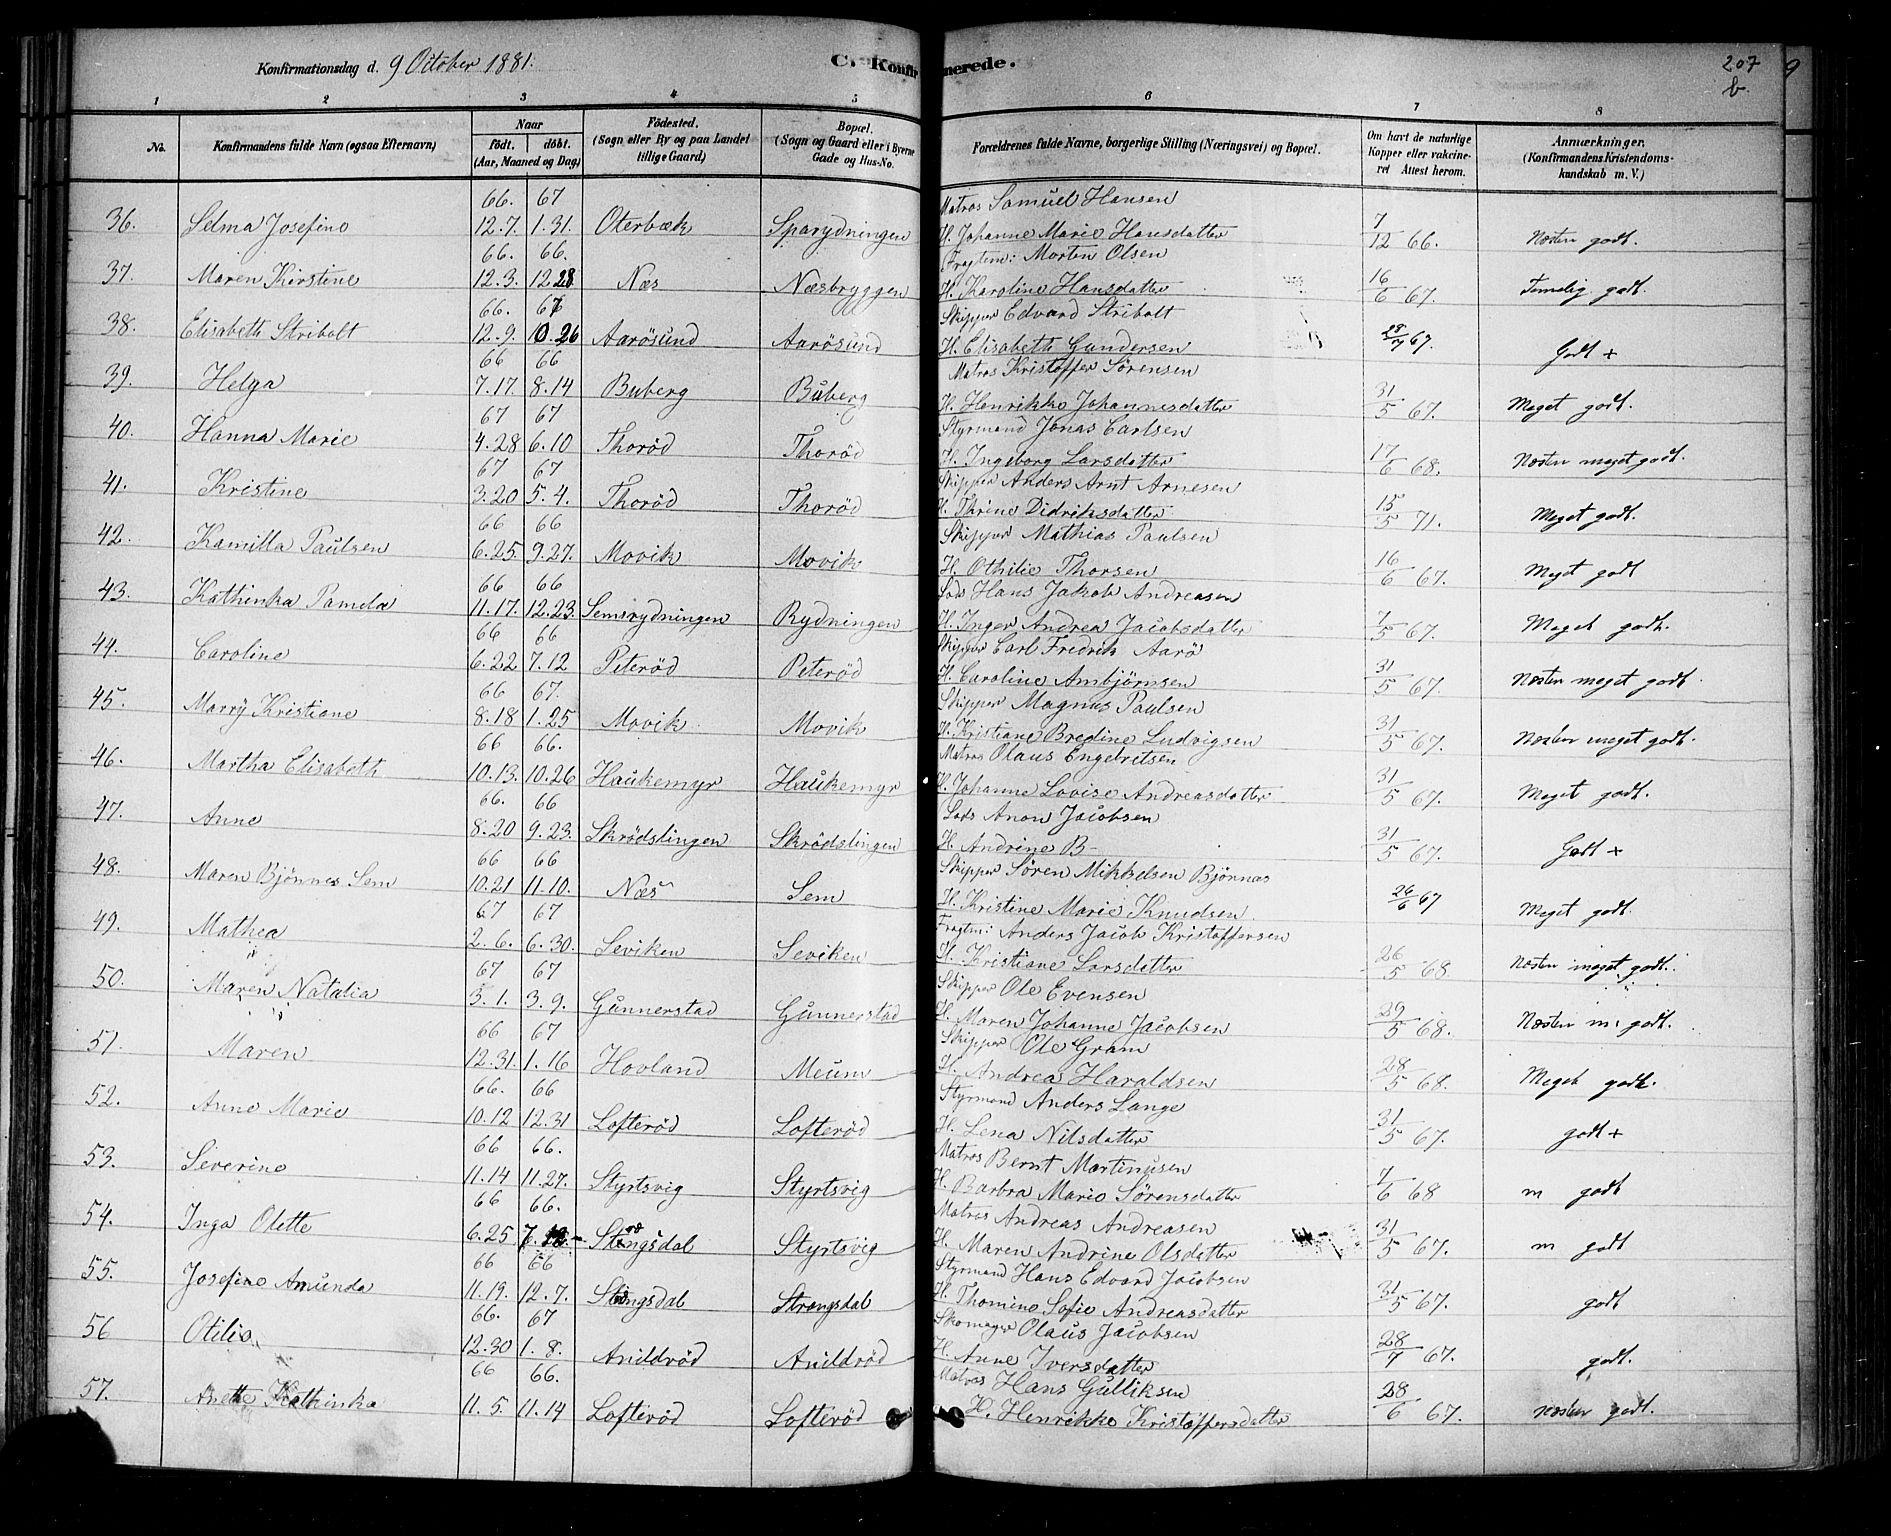 Konfirmationsdag d. 9 October 1881.
C. Konfirmerede.
207
b.
9
1 2 3 4 5 6 7 8
No. Konfirmandens fulde Navn (ogsaa Efternavn) Naar födt. döbt. (Aar, Maaned og Dag) Födested. (Sogn eller By og paa Landet tillige Gaard) Bopæl. (Sogn og Gaard eller i Byerne Gade og Hus-No. Forældrenes fulde Navne, borgerlige Stilling (Næringsvei) og Bopæl. Om havt de naturlige Kopper eller vakcineret Attest herom. Anmærkninger. (Konfirmandens Kristendomskundskab m. V.)
66. 67 Matros Samuel Hansen
36. Selma Josefine 12.7. 1.31. Oterbæk Sparydningen H. Johanne Marie Hansdatter 7/12 66. Næsten godt.
66. 66. Fragtem: Morten Olsen
37. Maren Kirstine 12.3. 12.28 Næs Næsbryggen H. Karoline Hansdatter 16/6 67. Temelig godt.
66. 67 Skipper Edvard Stribolt
38. Elisabeth Stribolt 12.9. 10.26 Aarösund Aarösund H. Elisabeth Gundersen 28/7 67. Godt +
66 66 Matros Kristoffer Sörensen
39. Helga 7.17. 8.14 Buberg Buberg H. Henrikke Johannesdatter 31/5 67. Meget godt.
67 67 Styrmand Jonas Carlsen
40. Hanna Marie 4.28 6.10 Thoröd Thoröd H. Ingeborg Larsdatter 17/6 68. Næsten meget godt.
67 67 Skipper Anders Arnt Arnesen
41. Kristine 3.20 5.4. Thoröd Thoröd H. Thrine Didriksdatter 15/5 71. Meget godt.
66 66 Skipper Mathias Paulsen
42. Kamilla Paulsen 6.25. 9.27. Movik Movik H. Othilie Thorsen 16/6 67. Meget godt
66 66 Lods Hans Jakob Andreasen
43. Kathinka Pamela 11.17. 12.23. Semsrydningen Rydningen H. Inger Andrea Jacobsdatter 7/5 67. Meget godt.
66 66 Skipper Carl Fredrik Aarö
44. Caroline 6.22 7.12 Peteröd Peteröd H. Caroline Ambjörnsen 31/5 67. Næsten meget godt
66 67. Skipper Magnus Paulsen
45. Marry Kristiane 8.18 1.25 Movik Movik H. Kristiane Bredine Ludvigsen 31/5 67. Næsten meget godt.
66 66. Matros Olaus Engebretsen
46. Martha Elisabeth 10.13. 10.26 Haukemyr Haukemyr H. Johanne Lovise Andreasdatter 31/5 67. Meget godt.
66. 66 Lods Anon Jacobsen
47. Anne 8.20 9.23. Skrödslingen Skrödslingen H. Andrine B- 31/5 67. Godt +
66 66 Skipper Sören Mikkelsen Björnnæs
48. Maren Bjönnes Sem 10.21 11.10. Næs Sem H. Kristine Marie Knudsen. 26/6 67 Meget godt.
67 67 Fragtm: Anders Jacob Kristoffersen
49. Mathea 2.6. 6.30. Seviken Seviken H. Kristiane Larsdatter 26/5 68 Næsten meget godt.
67 67 Skipper Ole Evensen
50. Maren Natalia 3.1. 3.9. Gunnerstad Gunnerstad H. Maren Johanne Jacobsen 29/5 68. Næsten m: godt.
66 67 Skipper Ole Gram
51. Maren 12.31. 1.16 Hovland Meum H. Andrea Haraldsen 28/5 68. Meget godt.
66. 66 Styrmand Anders Lange
52. Anne Marie 10.12 12.31 Lofteröd Lofteröd H. Lena Nilsdatter 31/5 67. godt +
66 66. Matros Bernt Martinusen
53. Severine 11.14 11.27. Styrtsvig Styrtsvig H. Barbra Marie Sörensdatter 7/6 68 m godt
66 66. Matros Andreas Andreasen
54. Inga Olette 6.25 Styrtsvig H. Maren Andrine Olsdatter 31/5 67. m godt
66 66 Styrmand Hans Edvard Jacobsen
55. Josefine Amunda 11.19. 12.7. Strangsdal H. Thomine Sofie Andreasdatter 31/5 67. godt
66. 67 Skomager Olaus Jacobsen
56 Otilie 12.30 1.8. Anildröd Anildröd H. Anne Iversdatter 28/7 67. godt.
66 66. Matros Hans Gulliksen
57. Anette Kathinka 11.5. 11.14 Lofteröd Lofteröd H. Henrikke Kristoffersdatter 28/6 67. næsten godt.